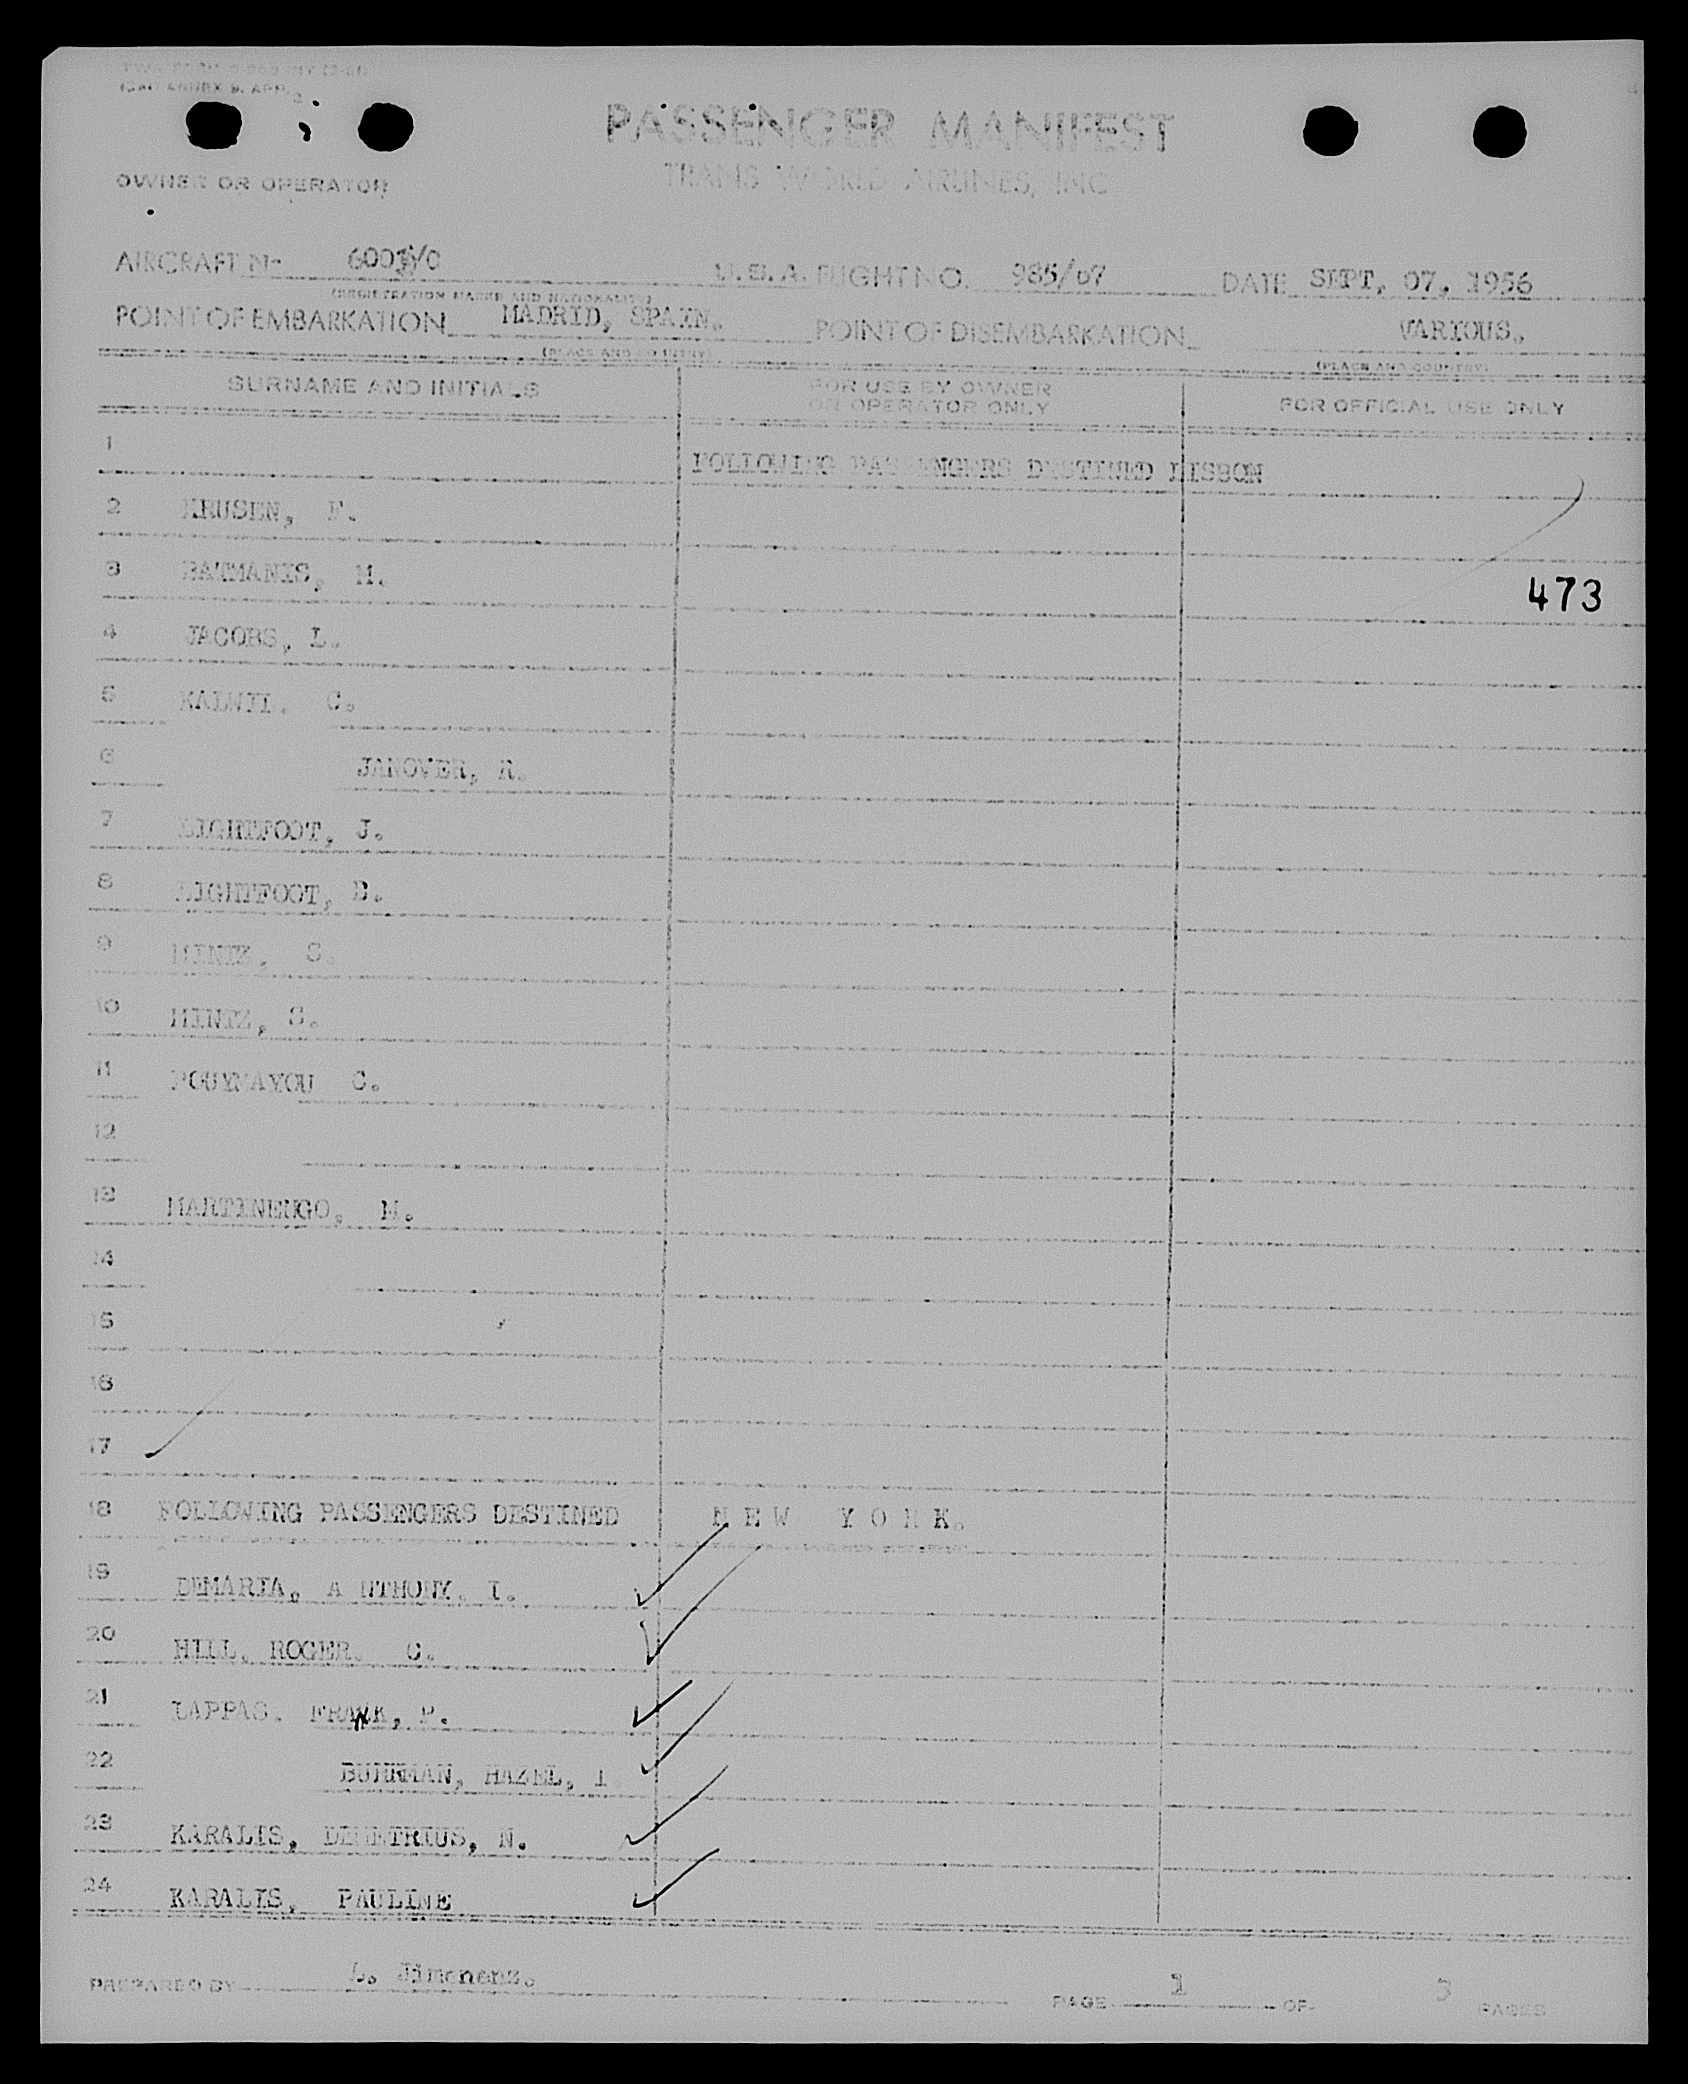 PASSENGER MANIFEST
TRANS WORLD AIRLINES, INC
OWNER OR OPERATOR
AIRCRAFT No
U.S.A. FLIGHT NO. 985/07 DATE SEPT, 07, 1956
(REGISTRATION MARKS AND NATIONALITY)
POINT OF EMBARKATION MADRID, SPAIN. POINT OF DISEMBARKATION VARIOUS.
(PLACE AND COUNTRY) (PLACE AND COUNTRY)
SURNAME AND INITIALS FOR USE BY OWNER OR OPERATOR ONLY FOR OFFICIAL USE ONLY
1 FOLLOWING PASSENGERS DESTINED LISBON
2 KRUSEN, F.
3 BATMANIS, M.
473
4 JACOBS, L.
5 C.
6 JANOVER, R.
7 LIGHTFOOT, J.
8 LIGHTFOOT, B.
9 MINTZ, S.
10 MINTZ, S.
11 POUYMAYOU C.
12
13 MARTINENGO, M.
14
15
16
17
18 FOLLOWING PASSENGERS DESTINED N E W Y O R K.
19 DEMARIA, A NTHONY. I.
20 HILL, ROGER. C.
21 LAPPAS. FRANK, P.
22 BUHRMAN, HAZEL, I
23 KARALIS, DEMETRIUS, N.
24 KARALIS, PAULINE
PREPARED BY L. Jimenenz.
PAGE 1 OF 3 PAGES